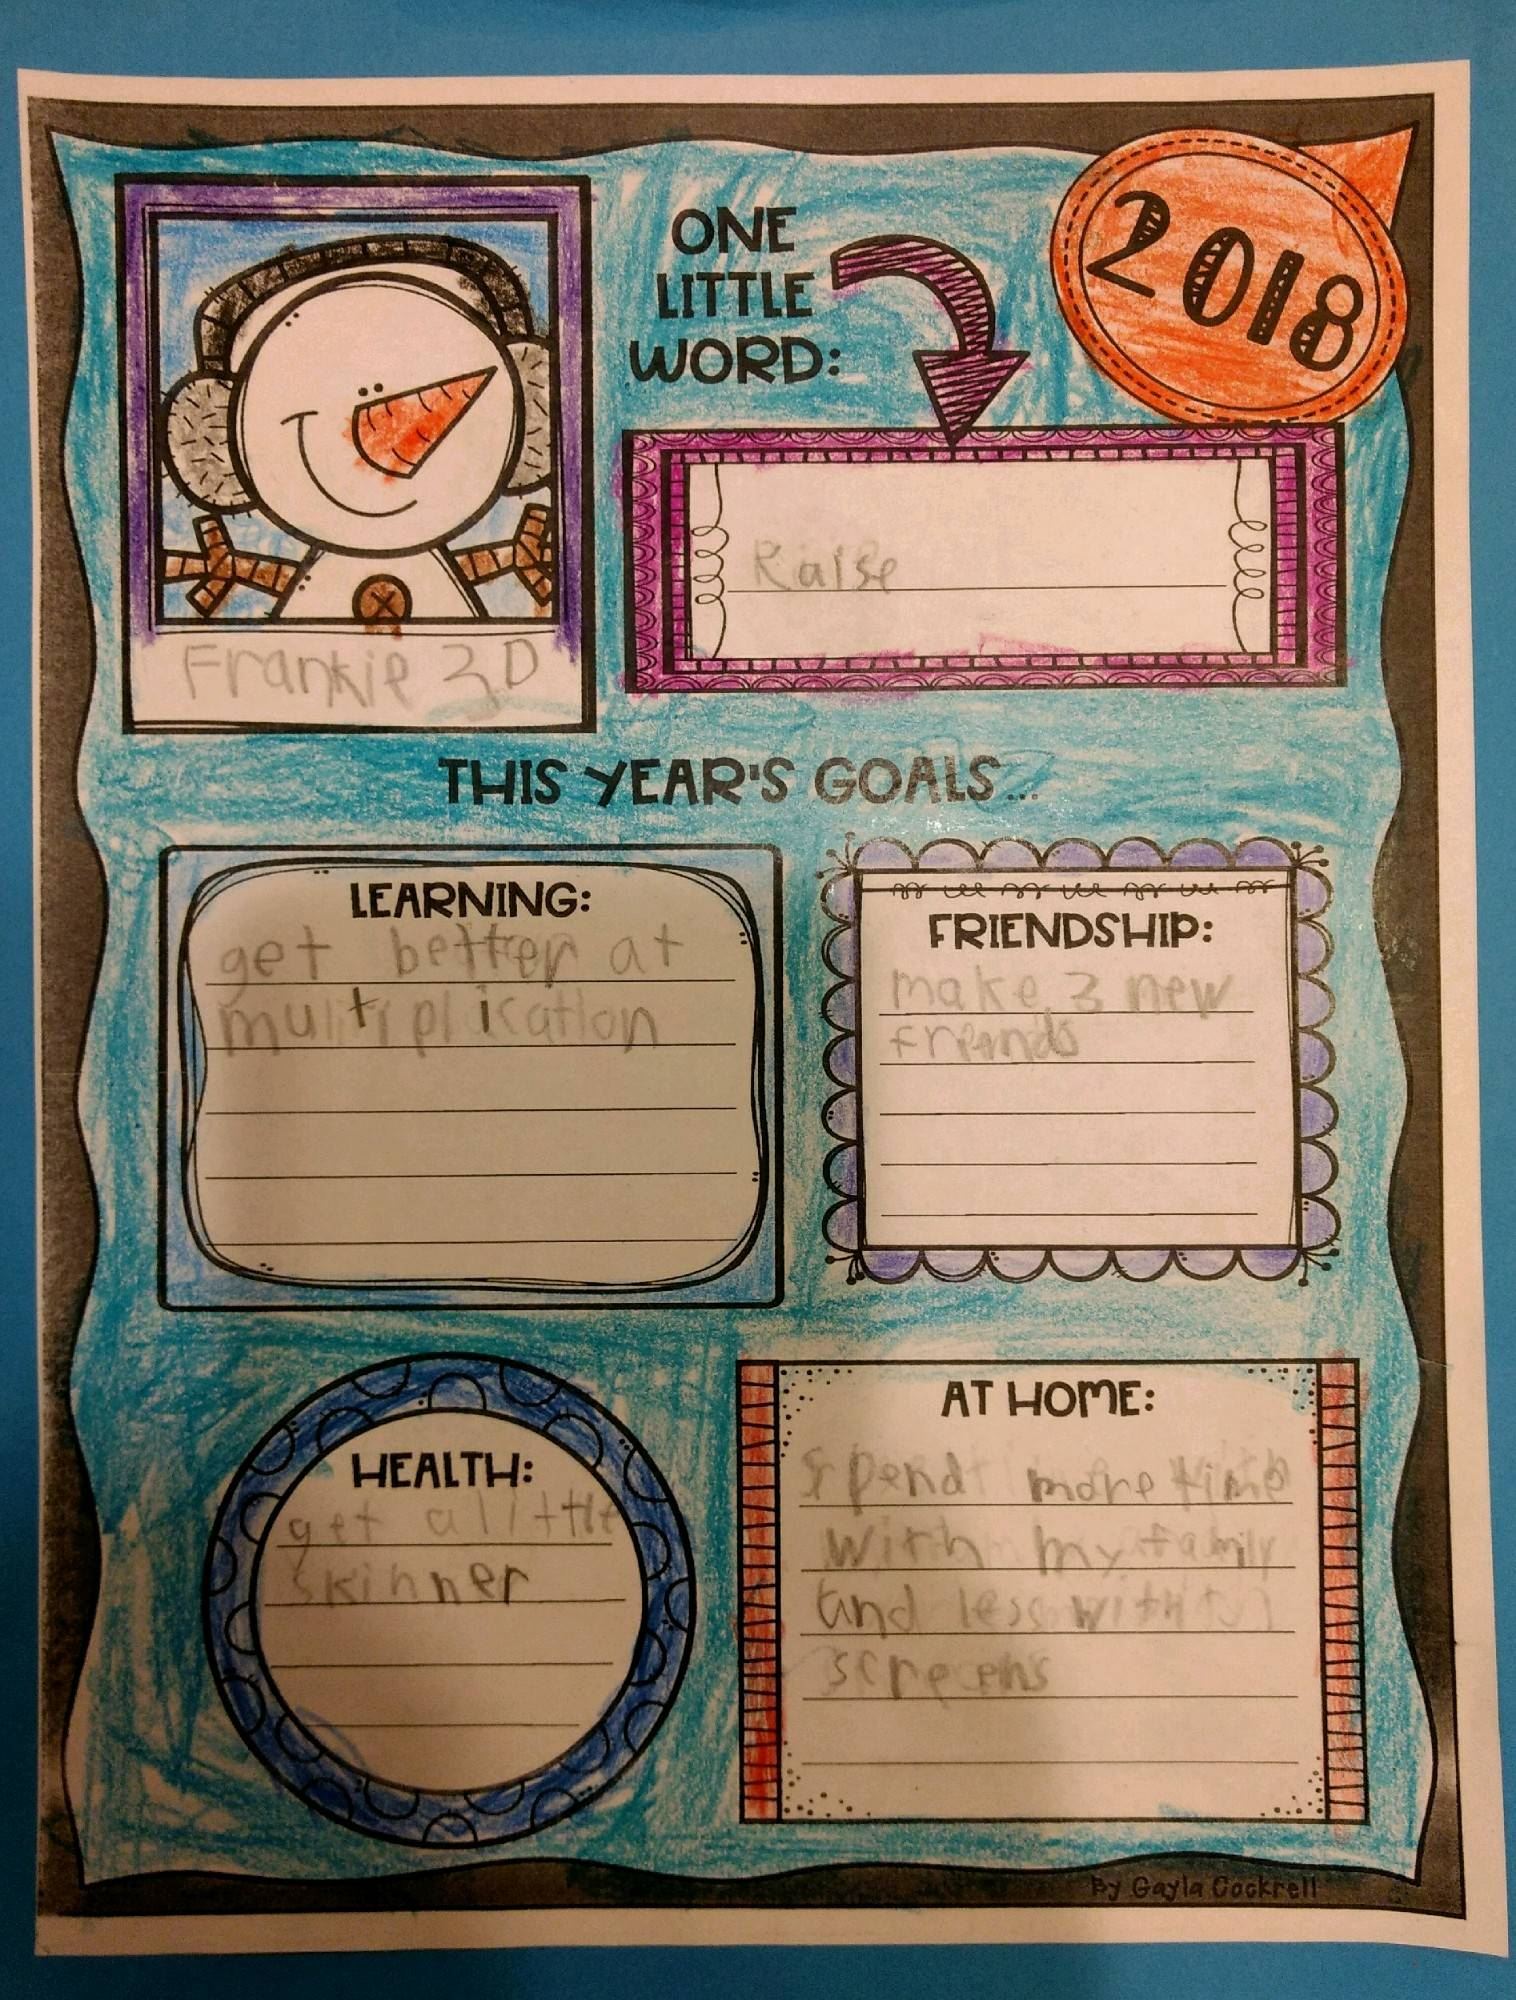 ONE
LITTLE
WORD:
2018
Raise
Frankie 3D
THIS YEAR'S GOALS...
LEARNING:
get better at
multiplication
FRIENDSHIP:
make 3 new
friends
HEALTH:
get a little
skinner
AT HOME:
spend more time
with my family
and less with
screens
By Gayla Cockrell